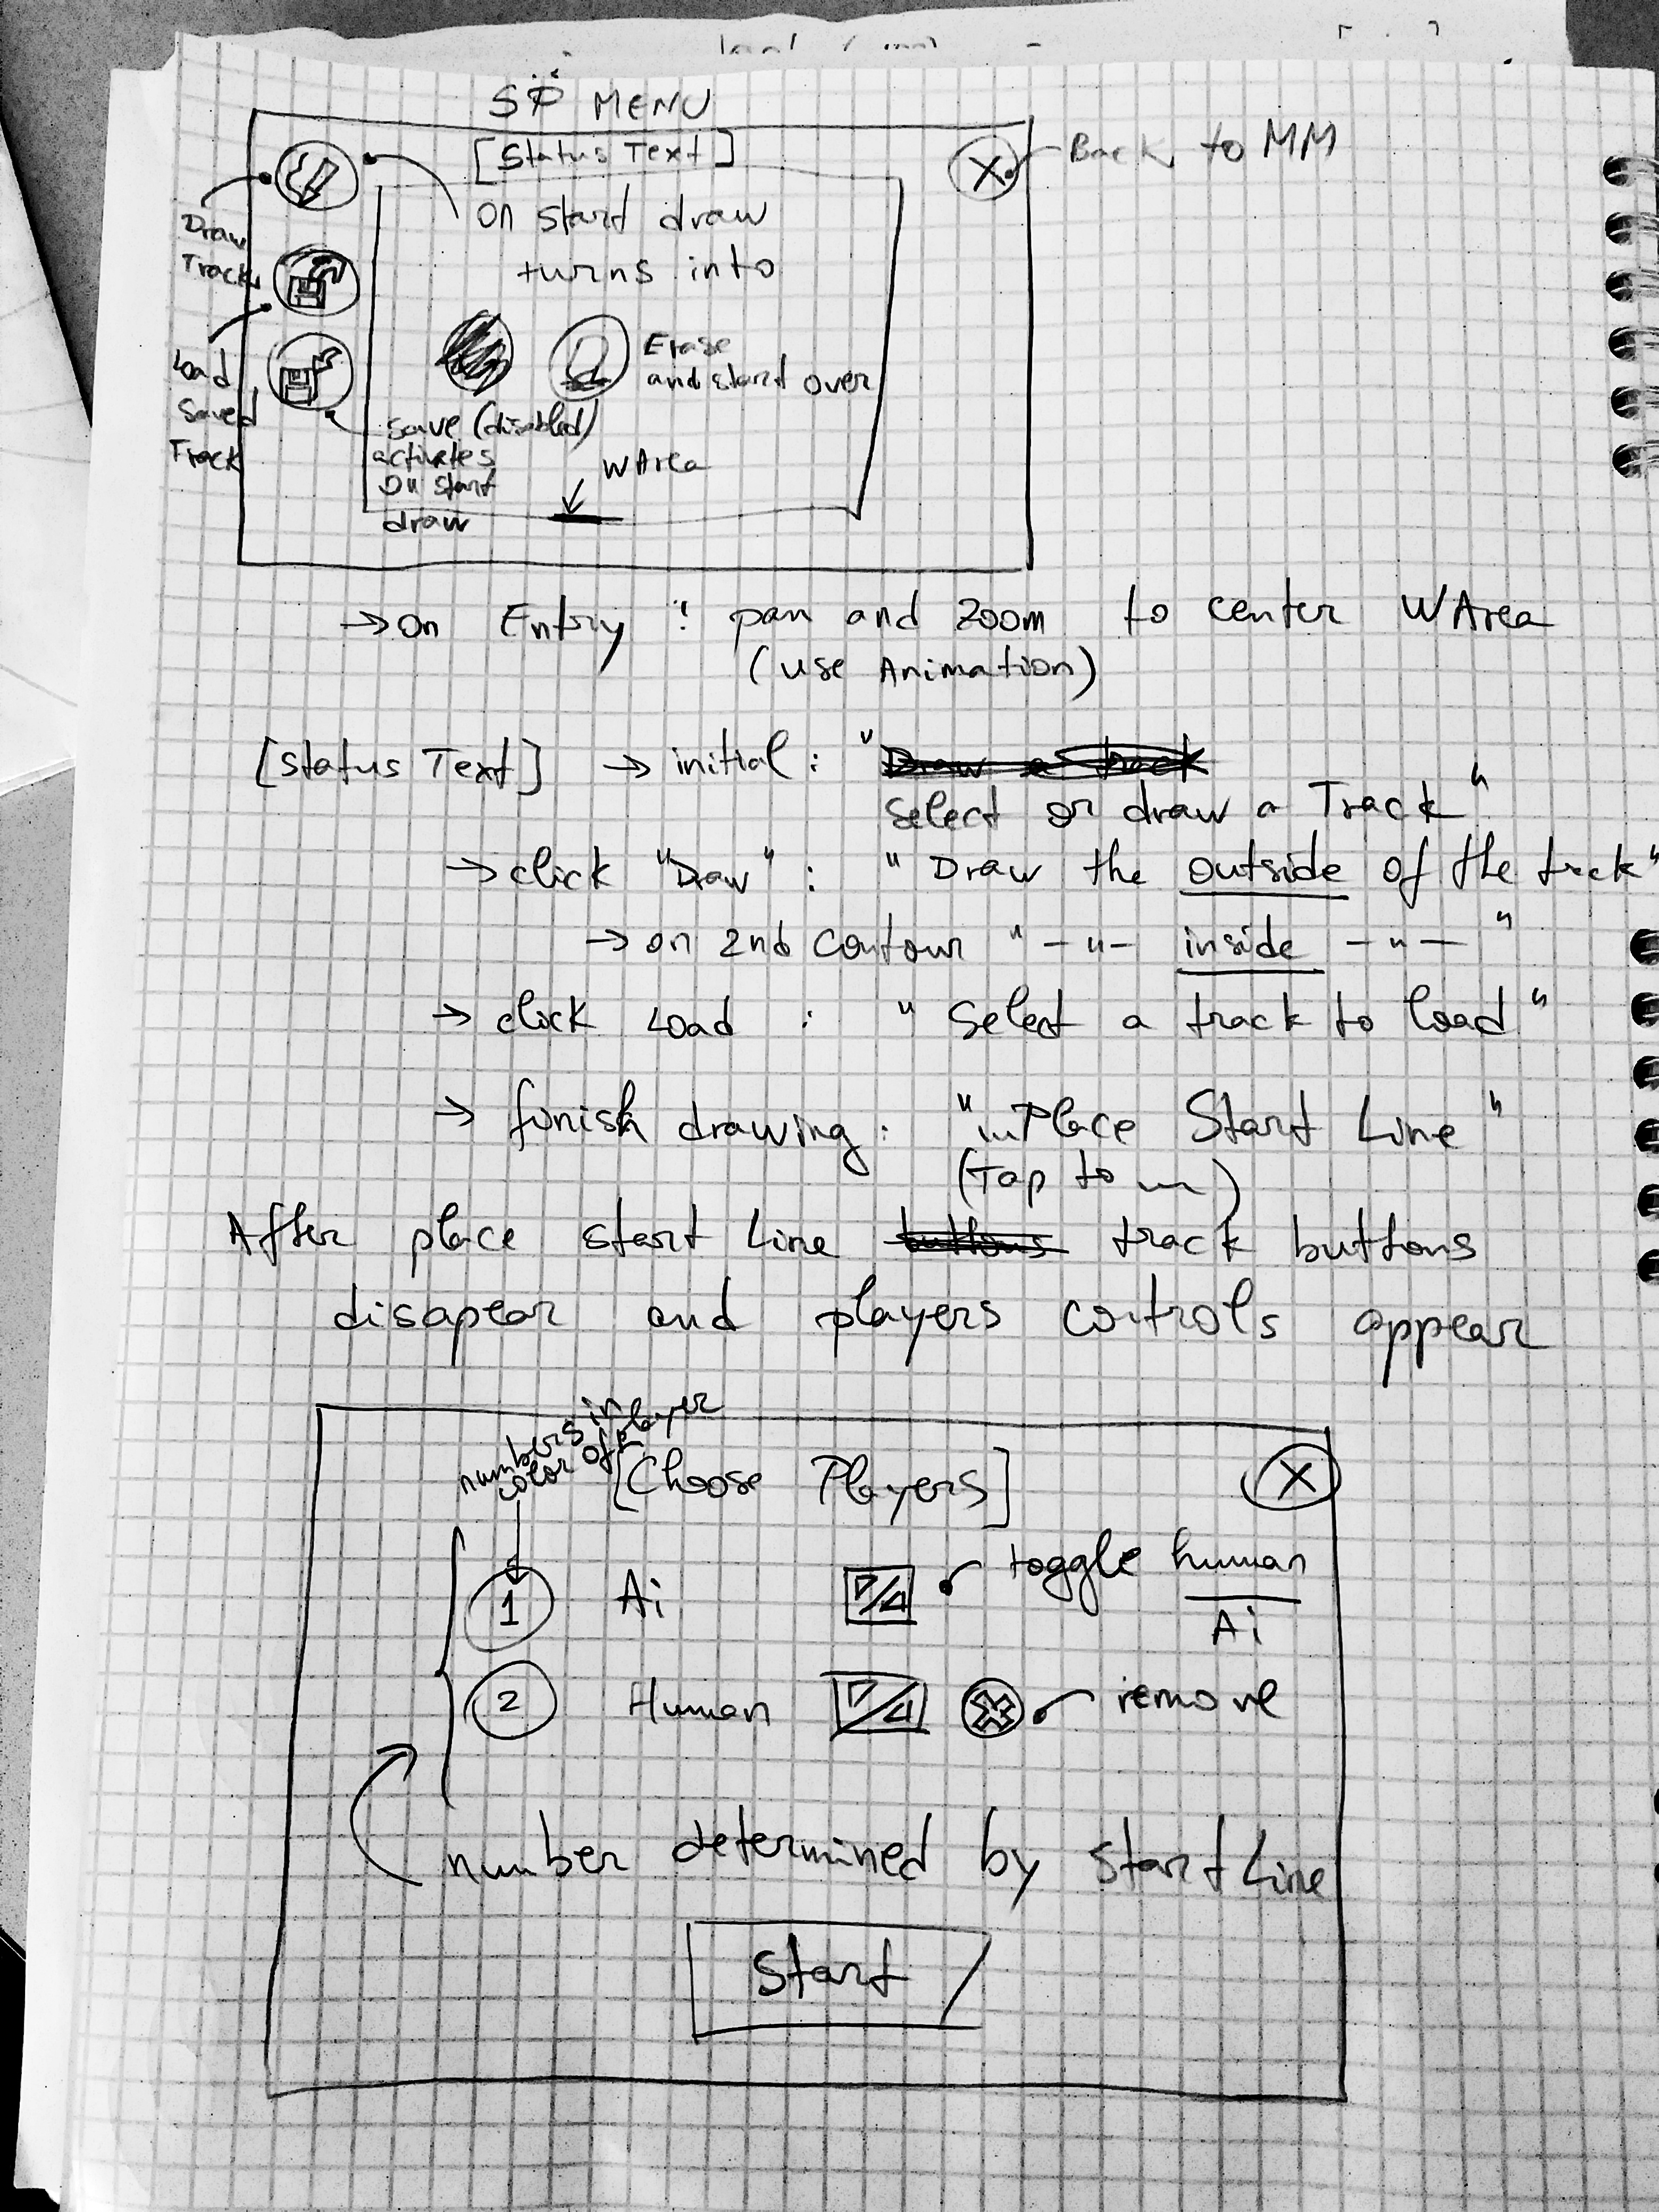 SP MENU
[Status Text]
Back to MM
Draw
Track
on start draw
turns into
Erase
and start over
Load
Saved
Track
save (disabled)
activates
on start
draw
WArea
→ on Entry : pan and zoom to center WArea
(use Animation)
[Status Text] → initial : "Draw a track
Select or draw a Track"
→ click "Draw" : "Draw the outside of the track"
→ on 2nd contour " -"- inside -"- "
→ click Load : "Select a track to load"
→ finish drawing : "Place Start Line"
(Tap to )
After place start Line buttons track buttons
disapear and players controls appear
numbers in
color of player
[Choose Players]
X
1 Ai
toggle human
Ai
2 Human
remove
number determined by start Line
Start